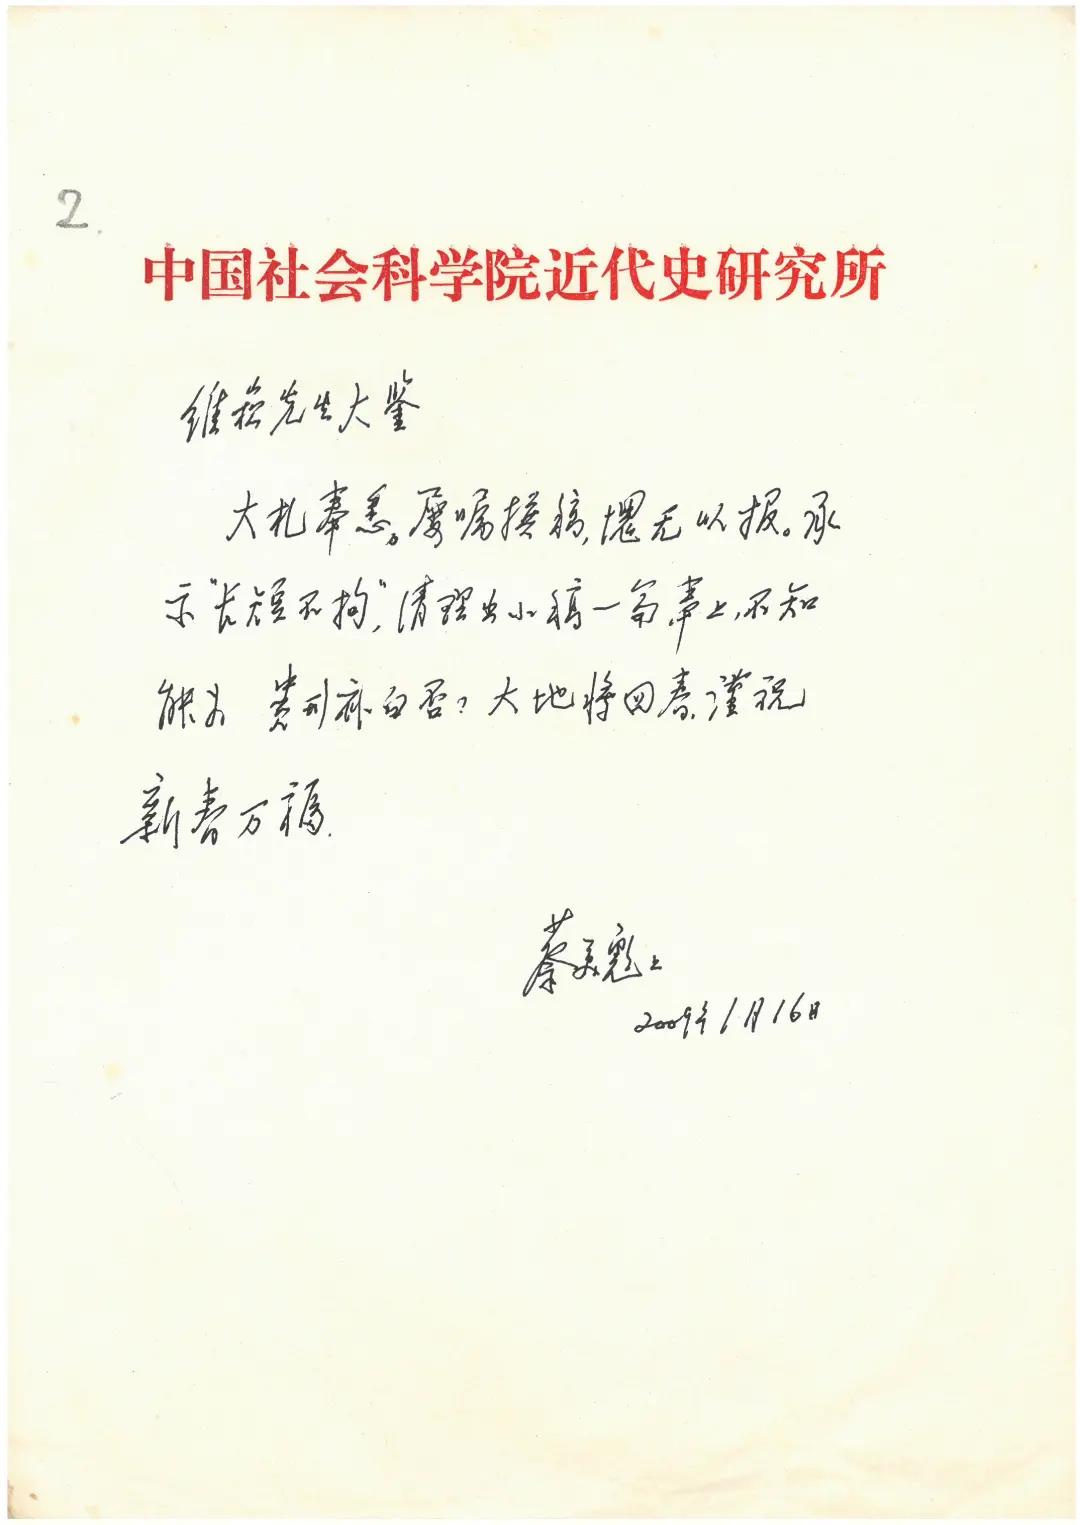 2.
中国社会科学院近代史研究所
维崧先生大鉴
大札奉悉。屡嘱撰稿,愧无以报。承
示"长短不拘",清理出小稿一篇奉上,不知
能为 贵刊补白否?大地将回春,谨祝
新春万福.
蔡美彪上
2009年1月16日